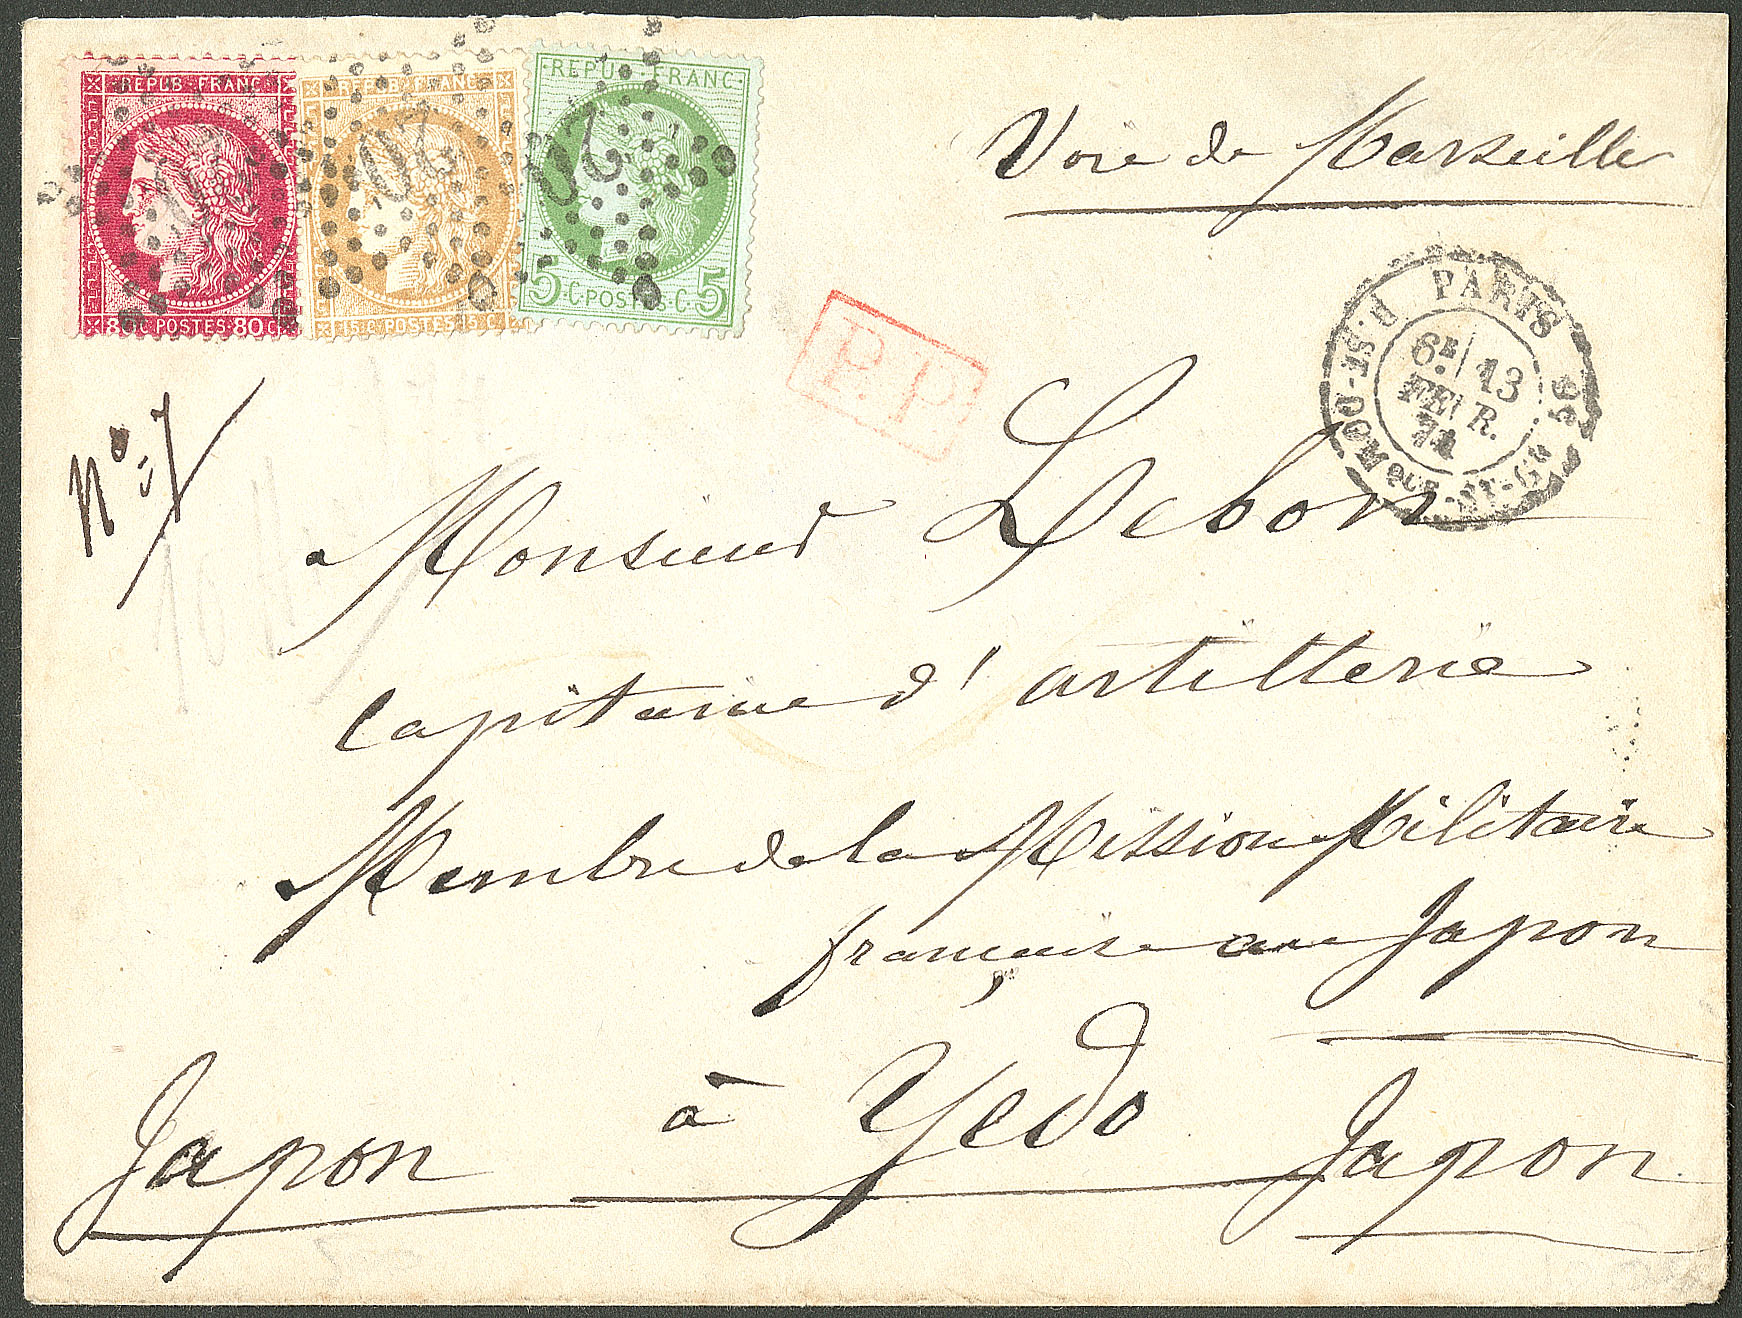 REPUB·FRANC·
80 C. POSTES·80C.
REPUB·FRANC·
15 C·POSTES·15 C.
REPUB·FRANC·
5 ·C·POSTES·C· 5
20
20
Voie de Marseille
P.P.
PARIS
R. ST-DOMQUE-ST-GN
6E 13
FEVR.
74
N°=7
Monsieur Lebon
Capitaine d'artillerie
Membre de la Mission Militaire
française au Japon
à Yedo
Japon
Japon